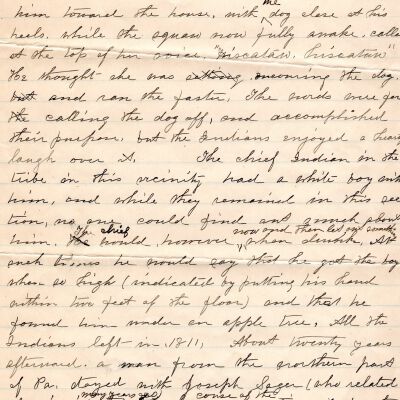 him toward the house, with the dog close at his
heels, while the squaw now fully awake, called
at the top of her voice, "Niscataw, hiscataw"
He thought she was setting, encouraging the dog,
but and ran the faster. The words were for
the calling the dog off, and accomplished
their purpose, but the Indians enjoyed a hearty
laugh over it. The chief Indian in the
tribe in this vicinity had a white boy with
him, and while they remained in this sec
tion, no one could find out much about
him. The chief would, however, now and then let out something when drunk. At
such times he would say that he got the boy
when so high (indicated by putting his hand
within two feet of the floor) and that he
found him under an apple tree. All the
Indians left in 1811. About twenty years
afterward, a man from the northern part
of Pa. stayed with Joseph Sager (who related
many years ago) a course of the